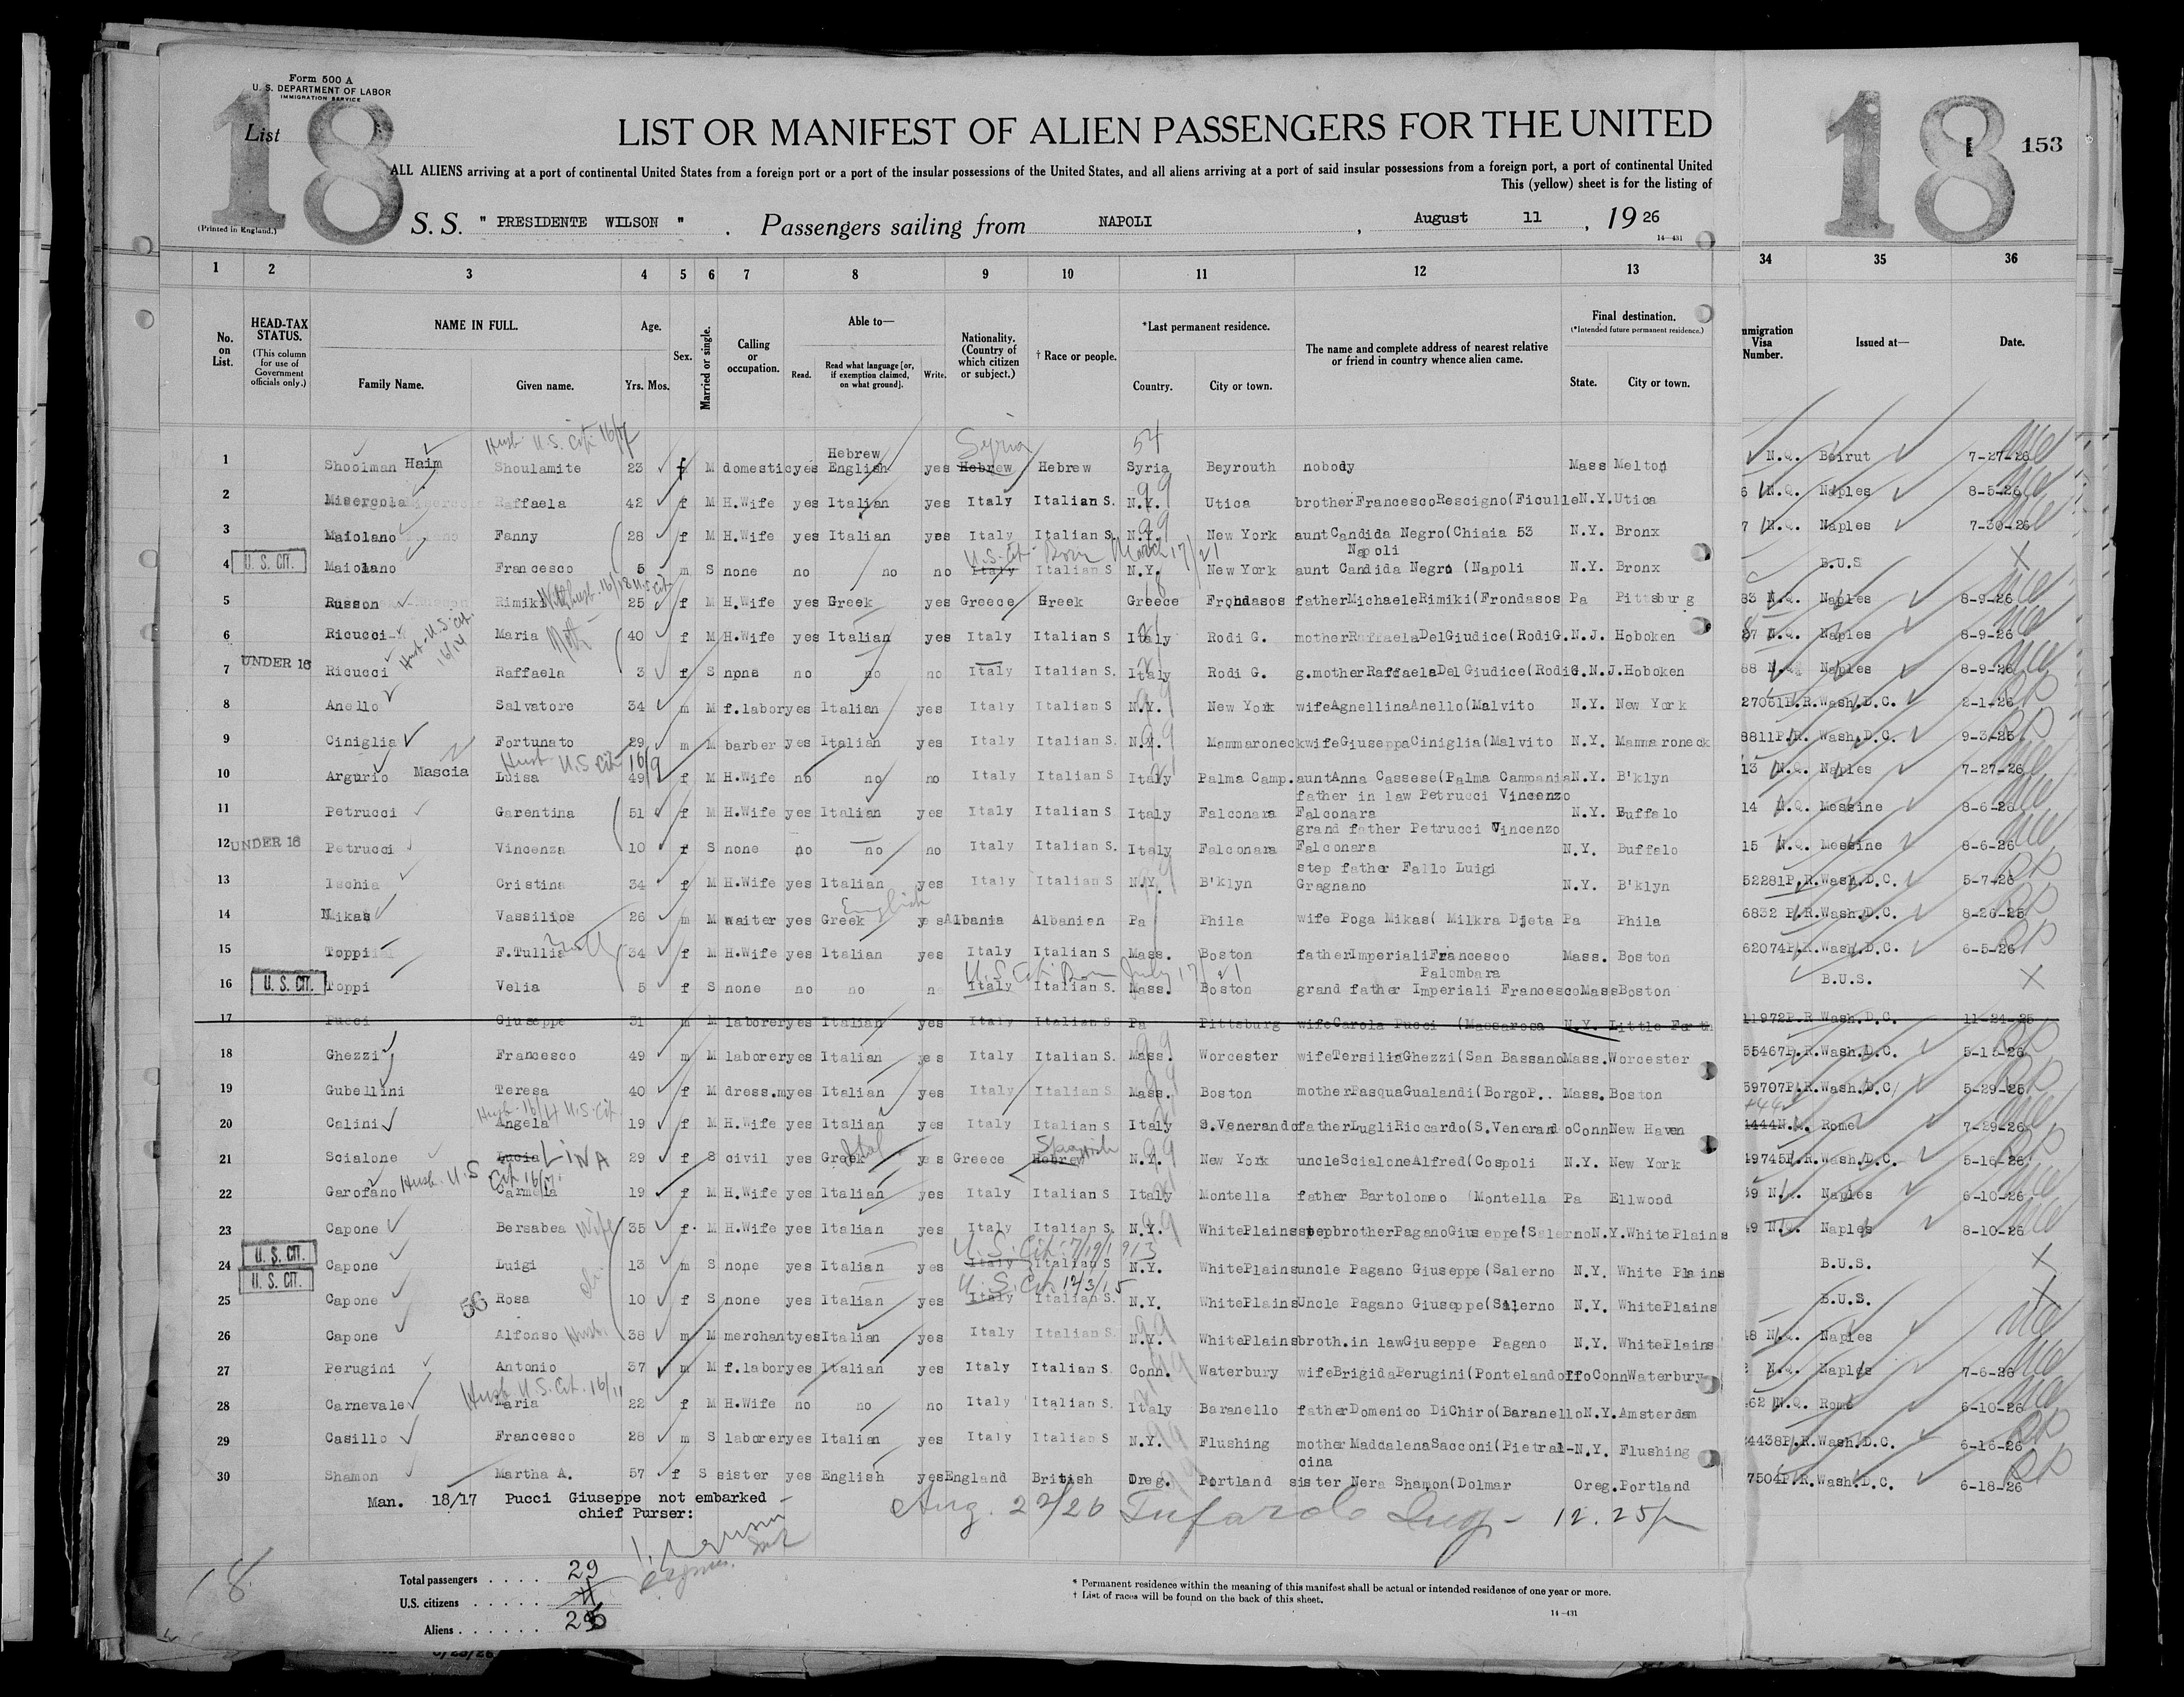 Form 500 A
U. S. DEPARTMENT OF LABOR
IMMIGRATION SERVICE
List
18
18
153
(Printed in England.)
LIST OR MANIFEST OF ALIEN PASSENGERS FOR THE UNITED
ALL ALIENS arriving at a port of continental United States from a foreign port or a port of the insular possessions of the United States, and all aliens arriving at a port of said insular possessions from a foreign port, a port of continental United
This (yellow) sheet is for the listing of
S. S. " PRESIDENTE WILSON " . Passengers sailing from NAPOLI , August 11 , 19 26
14—431
1 2 3 4 5 6 7 8 9 10 11 12 13 34 35 36
No. on List.
HEAD-TAX STATUS. (This column for use of Government officials only.)
NAME IN FULL. Family Name. Given name.
Age. Yrs. Mos.
Sex.
Married or single.
Calling or occupation.
Able to— Read. Read what language [or, if exemption claimed, on what ground]. Write.
Nationality. (Country of which citizen or subject.)
† Race or people.
*Last permanent residence. Country. City or town.
The name and complete address of nearest relative or friend in country whence alien came.
Final destination. (*Intended future permanent residence.) State. City or town.
mmigration Visa Number.
Issued at—
Date.
Husb. U.S. Cit. 16/17 Hebrew Syria 54
1 Shoolman Haim Shoulamite 23 f M domestic yes English yes Hebrew Hebrew Syria Beyrouth nobody Mass Melton N.Q. Beirut 7-27-26
2 Misercola Raffaela 42 f M H.Wife yes Italian yes Italy Italian S. N.Y. Utica brother Francesco Rescigno(Ficulle N.Y. Utica 6 N.Q. Naples 8-5-26
3 Maiolano Fanny 28 f M H.Wife yes Italian yes Italy Italian S. N.Y. New York aunt Candida Negro(Chiaia 53 N.Y. Bronx 7 N.Q. Naples 7-30-26
Napoli
U.S. Cit. Born March 17/21
4 U. S. CIT. Maiolano Francesco 5 m S none no no no Italy Italian S N.Y. New York aunt Candida Negro (Napoli N.Y. Bronx B.U.S
5 Russon Rimiki 25 f M H.Wife yes Greek yes Greece Greek Greece Frondasos father Michaele Rimiki(Frondasos Pa Pittsburg 83 N.Q. Naples 8-9-26
6 Ricucci Maria 40 f M H.Wife yes Italian yes Italy Italian S Italy Rodi G. mother Raffaela DelGiudice(RodiG. N.J. Hoboken 87 N.Q. Naples 8-9-26
Husb. U.S. Cit. 16/14
7 UNDER 16 Ricucci Raffaela 3 f S none no no no Italy Italian S Italy Rodi G. g.mother Raffaela Del Giudice(Rodi G. N.J. Hoboken 88 N.Q. Naples 8-9-26
8 Anello Salvatore 34 m M f.labor yes Italian yes Italy Italian S N.Y. New York wife Agnellina Anello(Malvito N.Y. New York 27061 P.R. Wash.D.C. 2-1-26
9 Ciniglia Fortunato 29 m M barber yes Italian yes Italy Italian S. N.Y. Mammaroneck wife Giuseppa Ciniglia(Malvito N.Y. Mammaroneck 8811 P.R. Wash.D.C. 9-3-25
Husb U.S Cit 16/9
10 Argurio Mascia Luisa 49 f M H.Wife no no no Italy Italian S Italy Palma Camp. aunt Anna Cassese(Palma Campania N.Y. B'klyn 13 N.Q. Naples 7-27-26
father in law Petrucci Vincenzo
11 Petrucci Garentina 51 f M H.Wife yes Italian yes Italy Italian S Italy Falconara Falconara N.Y. Buffalo 14 N.Q. Messine 8-6-26
grand father Petrucci Vincenzo
12 UNDER 16 Petrucci Vincenza 10 f S none no no no Italy Italian S. Italy Falconara Falconara N.Y. Buffalo 15 N.Q. Messine 8-6-26
step father Fallo Luigi
13 Ischia Cristina 34 f M H.Wife yes Italian yes Italy Italian S N.Y. B'klyn Gragnano N.Y. B'klyn 52281 P.R. Wash.D.C. 5-7-26
English
14 Mikas Vassilios 26 m M waiter yes Greek yes Albania Albanien Pa Phila wife Poga Mikas( Milkra Djeta Pa Phila 6832 P.R. Wash.D.C. 8-26-25
15 Toppi F.Tullia 34 f M H.Wife yes Italian yes Italy Italian S Mass. Boston father Imperiali Francesco Mass. Boston 62074 P.R. Wash.D.C. 6-5-26
Palombara
U.S. Cit. Born July 17/21
16 U. S. CIT. Toppi Velia 5 f S none no no n Italy Italian S. Mass. Boston grand father Imperiali Francesco Mass Boston B.U.S.
17 Pucci Giuseppe 31 m M laborer yes Italian yes Italy Italian S Pa Pittsburg wife Carola Pucci (Massarosa N.Y. 11972 P.R Wash.D.C. 11-24-25
18 Ghezzi Francesco 49 m M laborer yes Italian yes Italy Italian S. Mass. Worcester wife Tersilia Ghezzi(San Bassano Mass. Worcester 55467 P.R. Wash.D.C. 5-15-26
19 Gubellini Teresa 40 f M dress.m yes Italian yes Italy Italian S Mass. Boston mother Pasqua Gualandi(BorgoP.. Mass. Boston 59707 P.R. Wash.D.C 5-29-25
Husb. 16/4 U.S. Cit.
20 Calini Angela 19 f M H.Wife yes Italian yes Italy Italian S Italy S.Venerando father Lugli Riccardo(S.Venerando Conn New Haven Rome 7-29-26
Ital Spanish
21 Scialone Lucia LINA 29 f S civil yes Greek yes Greece Hebrew N.Y. New York uncle Scialone Alfred(Cospoli N.Y. New York 49745 P.R. Wash.D.C. 5-16-26
Husb. U.S Cit 16/17
22 Garofano Carmela 19 f M H.Wife yes Italian yes Italy Italian S Italy Montella father Bartolomeo (Montella Pa Ellwood 39 Naples 6-10-26
23 Capone Bersabea Wife 35 f. M H.Wife yes Italian yes Italy Italian S. N.Y. WhitePlains stepbrother Pagano Giuseppe(Salerno N.Y. WhitePlains 49 N.Q. Naples 8-10-26
U. S. Cit. 7/19/1913
24 U. S. CIT. Capone Luigi 13 m S none yes Italian yes Italy Italian S N.Y. WhitePlains uncle Pagano Giuseppe(Salerno N.Y. White Plains B.U.S.
U. S. CIT.
U.S. Cit. 12/3/15
25 Capone 56 Rosa 10 f S none yes Italian yes Italy Italian S. N.Y. WhitePlains Uncle Pagano Giuseppe(Salerno N.Y. WhitePlains B.U.S.
26 Capone Alfonso Husb. 38 m M merchant yes Italian yes Italy Italian S. N.Y. WhitePlains broth.in law Giuseppe Pagano N.Y. WhitePlains 48 Naples
27 Perugini Antonio 37 m M f.labor yes Italian yes Italy Italian S. Conn. Waterbury wife Brigida Perugini(Pontelandolfo Conn Waterbury N.Q. Naples 7-6-26
Husb U.S. Cit. 16/11
28 Carnevale Maria 22 f M H.Wife no no no Italy Italian S. Italy Baranello father Domenico DiChiro(Baranello N.Y. Amsterdam 62 N.Q. Rome 6-10-26
29 Casillo Francesco 28 m S laborer yes Italian yes Italy Italian S N.Y. Flushing mother Maddalena Sacconi(Pietral- N.Y. Flushing 24438 P.R. Wash.D.C. 6-16-26
cina
30 Shamon Martha A. 57 f S sister yes English yes England British Oreg. Portland sister Nera Shamon(Dolmar Oreg. Portland 7504 P.R. Wash.D.C. 6-18-26
Man. 18/17 Pucci Giuseppe not embarked
chief Purser:
Aug. 22/26 Tufarolo Insp. 12.25
18
Total passengers . . . . 29
U.S. citizens . . . . . 4
Aliens . . . . . . 25
* Permanent residence within the meaning of this manifest shall be actual or intended residence of one year or more.
† List of races will be found on the back of this sheet.
14—431